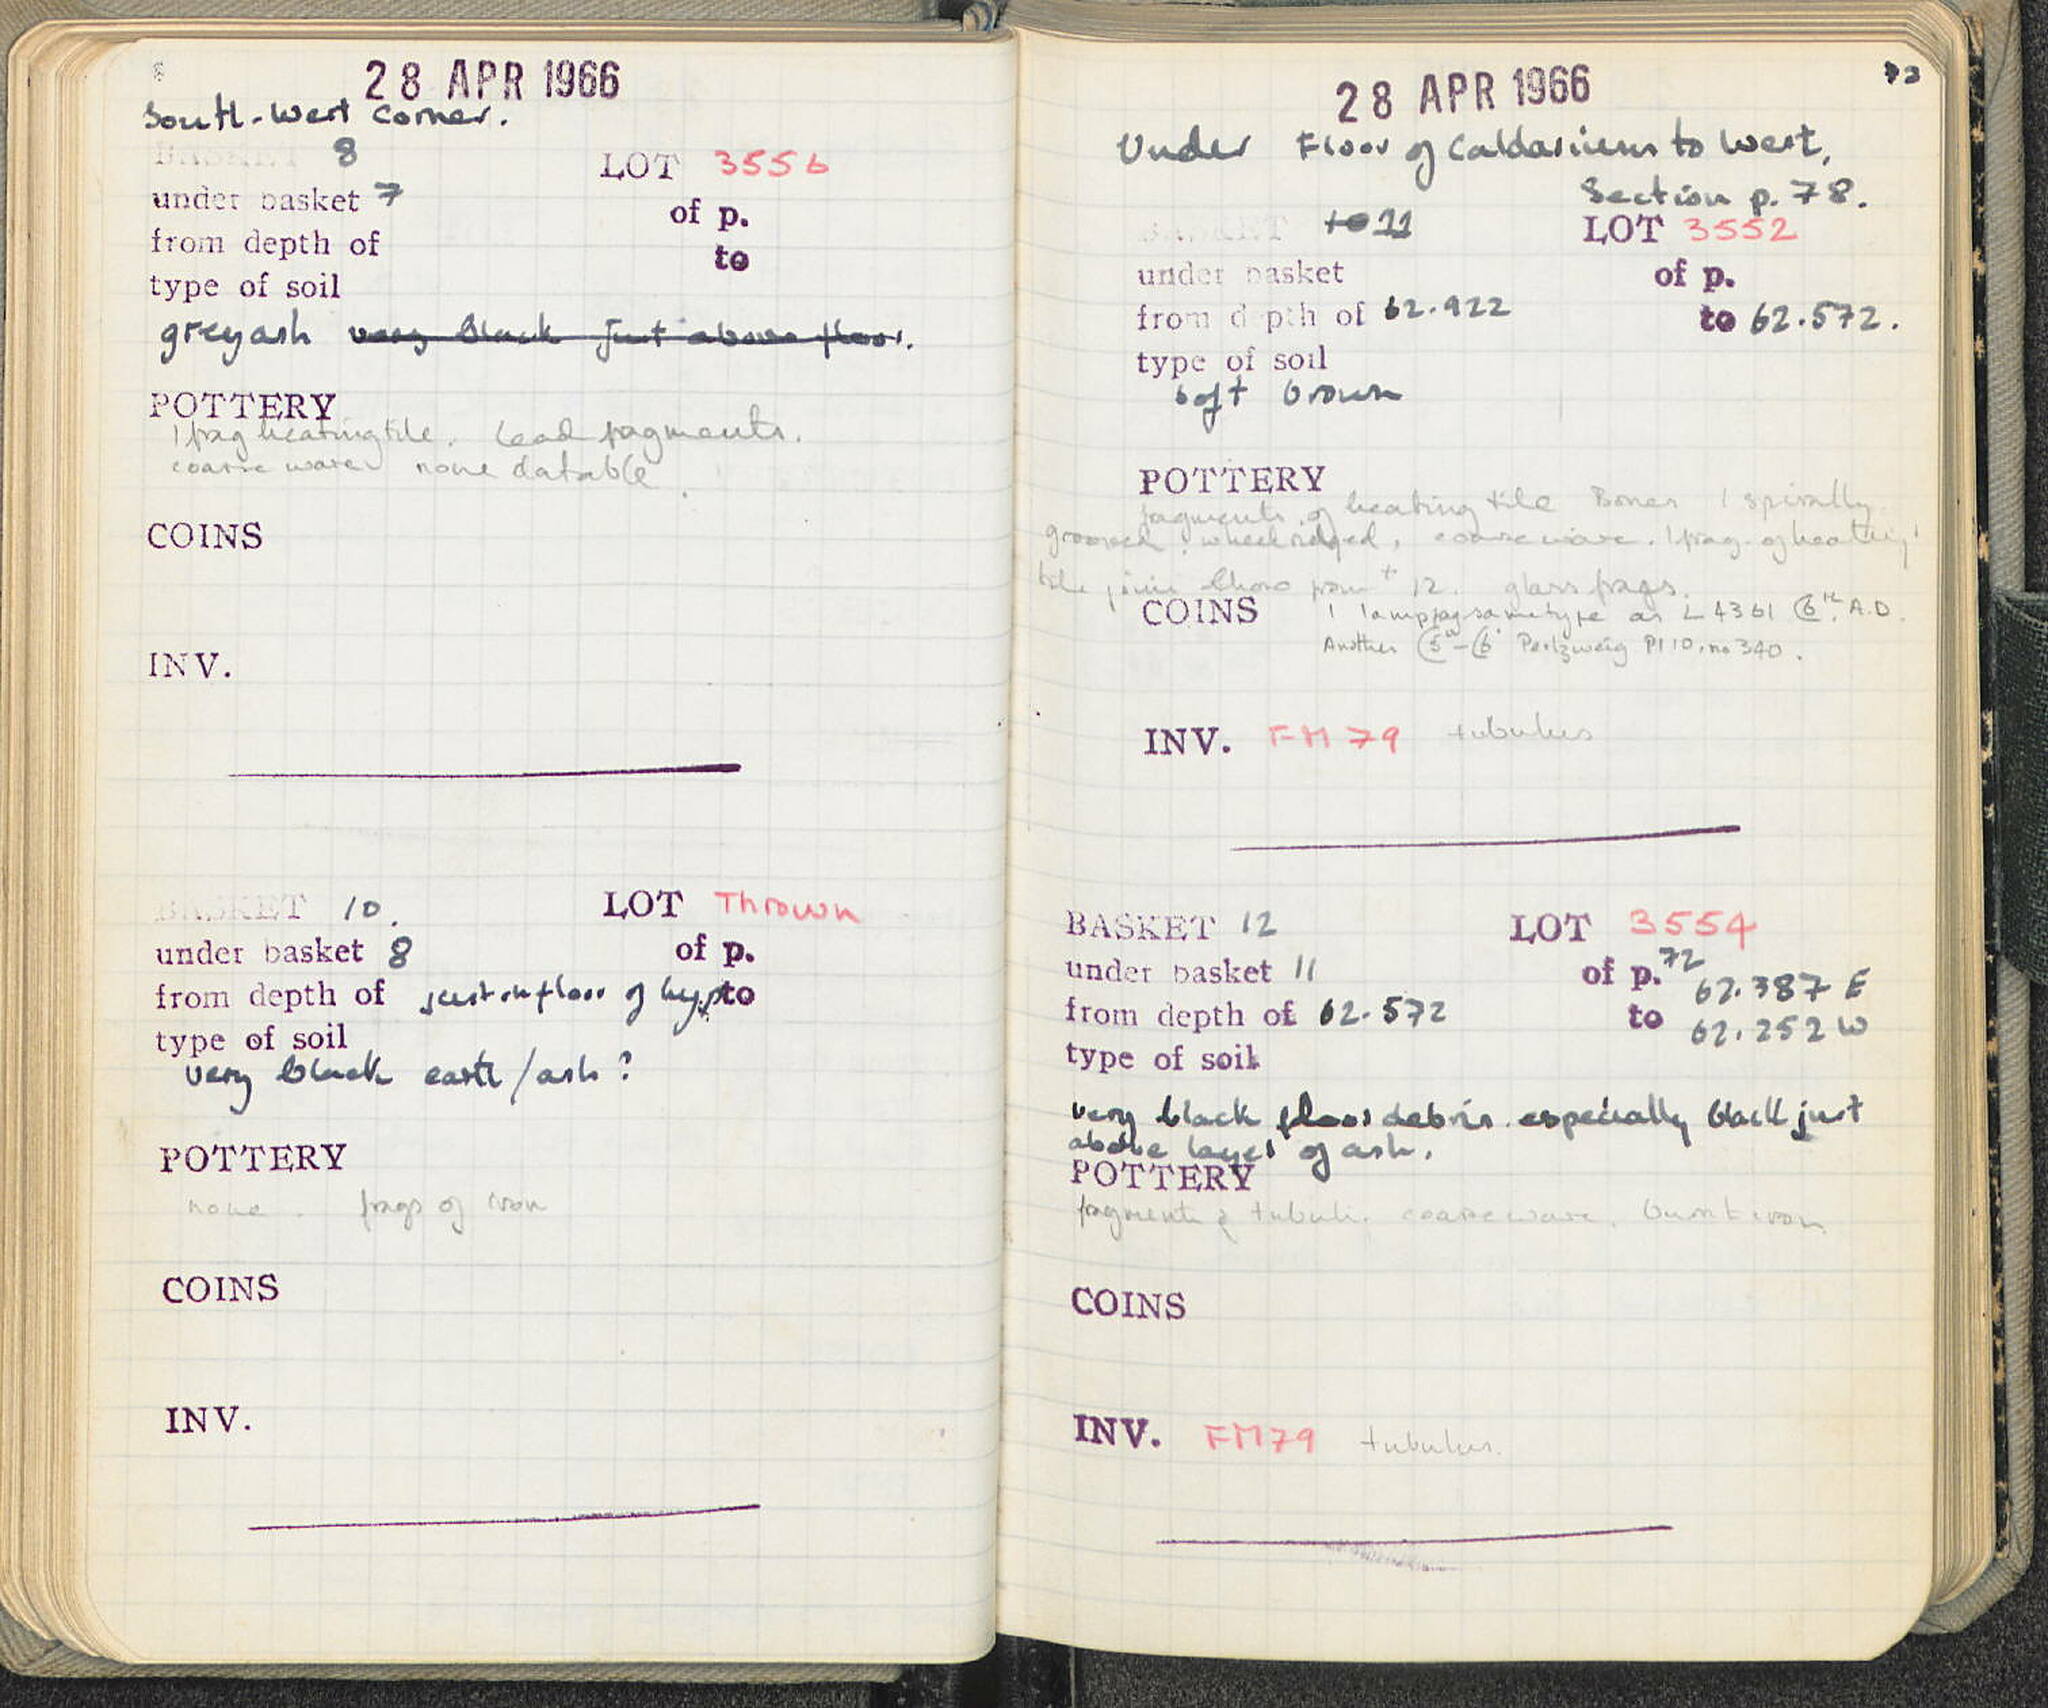 28 APR 1966
South-West corner.
BASKET 8 LOT 3556
under basket 7 of p.
from depth of to
type of soil
grey ash very black just above floor.
POTTERY
1 frag heating tile. Lead fragments.
coarse ware none datable.
COINS
INV.
BASKET 10. LOT Thrown
under basket 8 of p.
from depth of just on floor of hyp. to
type of soil
very black earth/ash?
POTTERY
none. frags of iron
COINS
INV.
73
28 APR 1966
Under Floor of Caldarium to West,
Section p. 78.
BASKET 11 LOT 3552
under basket of p.
from depth of 62.922 to 62.572.
type of soil
soft brown
POTTERY
fragments of heating tile Bones 1 spirally
grooved, wheel ridged, coarse ware. 1 frag. of heating
tile joins those from + 12. glass frags.
COINS 1 lamp frag same type as L 4361 C6th A.D.
Another C5th-C6 Perlzweig Pl 10, no 340.
INV. FM 79 tubulus
BASKET 12 LOT 3554
under basket 11 of p. 72
62.387 E
from depth of 62.572 to 62.252 W
type of soil
very black floor debris especially black just
above layer of ash.
POTTERY
fragments of tubuli. coarse ware. burnt iron
COINS
INV. FM79 tubulus.